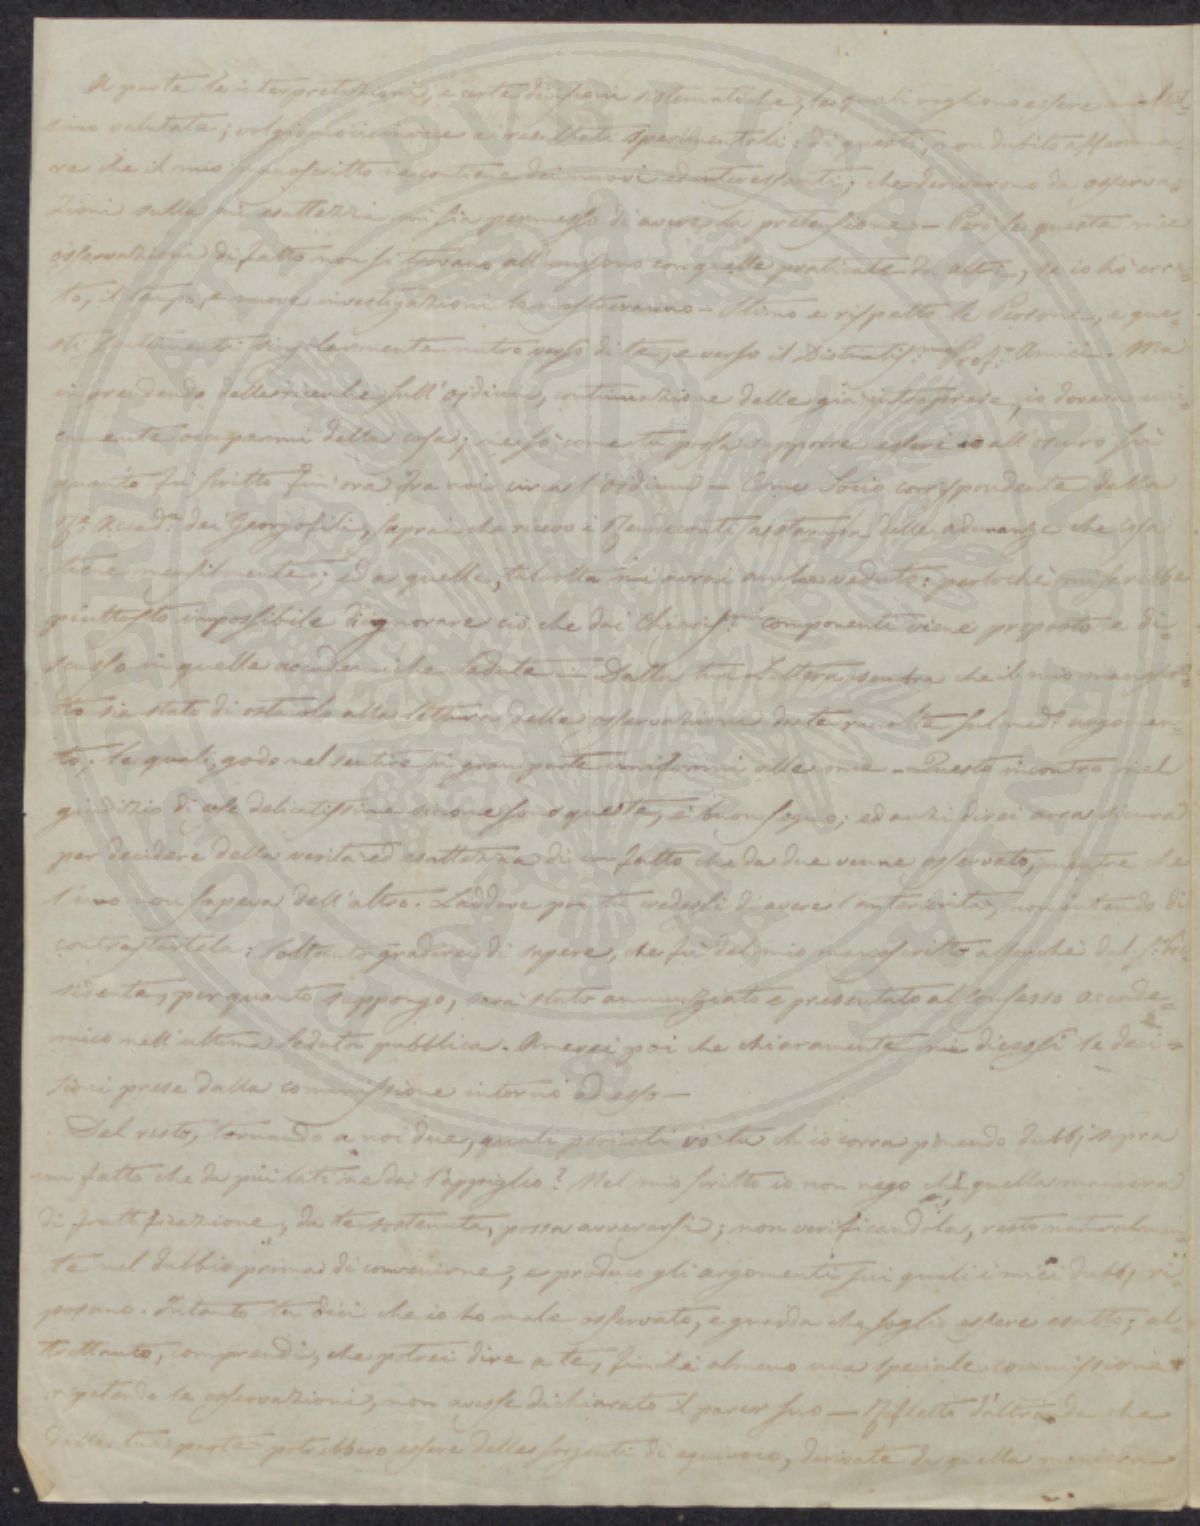 A parte le interpretazioni, e certe divisioni sistematiche, le quali vogliono essere moltis=
simo valutate; volgiamoci invece ai resultati sperimentali: di questi, non dubito afferma=
re che il mio manoscritto ne contiene dei nuovi ed interessanti; che derivarono da osserva=
zioni sulla cui esattezza mi sia permesso di avere la pretensione — Però se queste mie
osservazioni di fatto non si trovano all'unisono con quelle praticate da altri, se io ho erra=
to, il tempo, e nuove investigazioni lo mostreranno — Stimo e rispetto le Persone, e que=
sti sentimenti singolarmente nutro verso di te, e verso il Distintiss.mo Prof.r Amici. Ma
imprendendo delle ricerche sull'oidium, continuazione delle già intraprese, io doveva uni=
camente occuparmi della cosa; ne so come tu possa supporre essere io all'oscuro su
quanto fu scritto fin'ora fra noi circa l'oidium — Come Socio corrispondente della
R.a Accad.a dei Georgofili, saprai che ricevo i Rendiconti a stampa delle adunanze che essa
tiene mensilmente; ed a quelle, talvolta mi avrai anche veduto: perlochè mi sarebbe
piuttosto impossibile d'ignorare ciò che dai Chiariss.mi componenti viene proposto e di=
scusso in quelle accademiche sedute — Dalla tua Lettera sembra che il mio manoscrit=
to sia stato di ostacolo alla lettura delle osservazioni da te raccolte sul med.o argomen=
to; le quali, godo nel sentire in gran parte uniformi alle mie — Questo incontro nel
giudizio di cose delicatissime siccome sono queste, è buon segno; ed anzi direi arra sicura
per decidere della verità ed esattezza di un fatto che da due venne osservato, mentre che
l'uno non sapeva dell'altro. Laddove poi tu credessi di avere l'anteriorità, non intendo di
contrastartela: soltanto gradirei di sapere, che fu del mio manoscritto allorchè dal S.r Pre=
sidente, per quanto suppongo, sarà stato annunziato e presentato al Consesso accade=
mico nell'ultima seduta pubblica. Amerei poi che chiaramente mi dicessi le deci=
sioni prese dalla commissione intorno ad esso —
Del resto, tornando a noi due, quali pericoli vo' tu ch'io corra ponendo dubbj sopra
un fatto che da più lati ne dà l'appiglio? Nel mio scritto io non nego che quella maniera
di fruttificazione, da te sostenuta, possa avverarsi; non verificandola, resto naturalmen=
te nel dubbio prima di convenirne, e produco gli argomenti sui quali i miei dubbj ri=
posano. Intanto tu dici che io ho male osservato, e guarda che soglio essere esatto; al=
trettanto, comprendi, che potrei dire a te, finchè almeno una speciale commissione
ripetendo le osservazioni, non avesse dichiarato il parer suo — Rifletto d'altronde che
dalla tua parte potrebbero essere delle sorgenti di equivoco, derivate da quella maniera